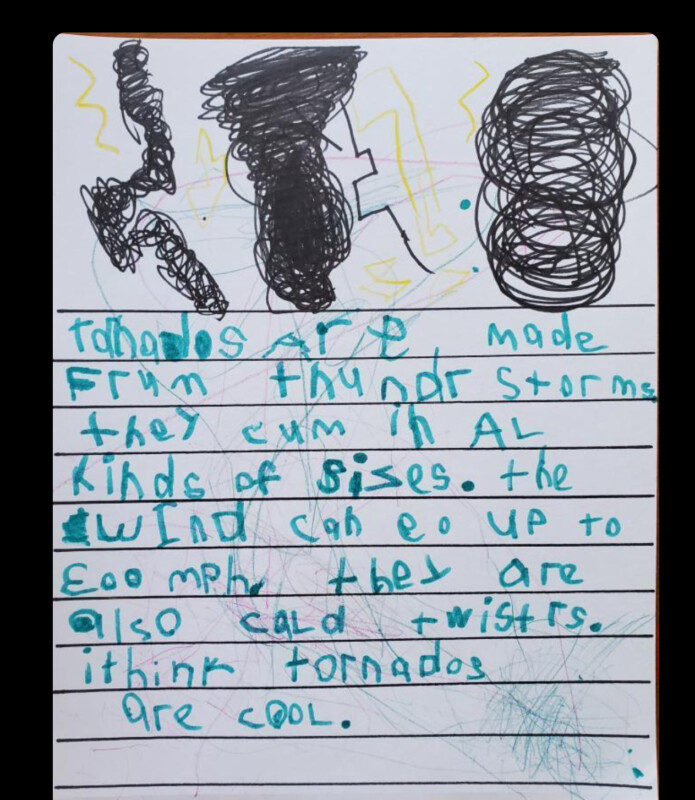 tornados are made
Frum thundr storms
they cum in AL
kinds of sises. the
wInd can go up to
300 mph, they are
also cald twistrs.
ithink tornados
are cooL.